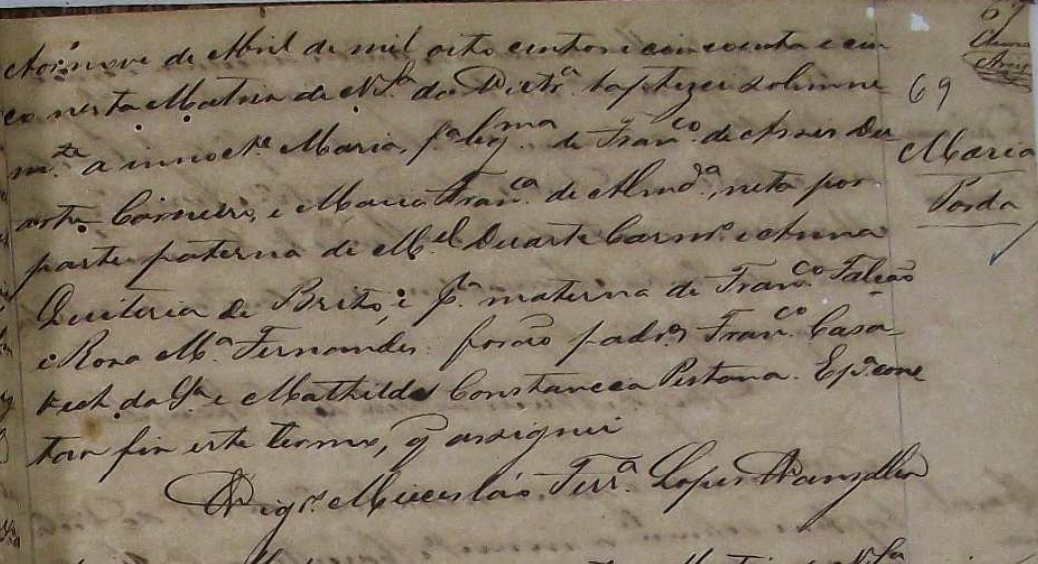 69
Aos nove de Abril de mil oito centos e cincoenta e cin
co nesta Matriz de N. Sª da Victª baptizei solemne
mte a innocte Maria, fª legma de Franco de Assis Du
arte Carneiro, e Maria Franca de Almdª, neta por
parte paterna de Mel Duarte Carnro e Anna
Quiteria de Brito, e pª materna de Franco Falcão
e Rosa Mª Fernandes forão padros Franco Casa
da Gª e Mathildes Constancea Pestana. E pª cons
tar fiz este termo, q assignei
Vigro Miceslão Ferrª Lopes
69
Maria
Parda